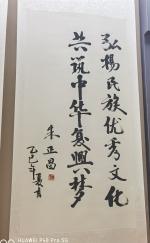 弘杨民族优秀文化
共筑中华复兴梦
朱正昌
乙巳年夏月
HUAWEI P60 Pro 5G